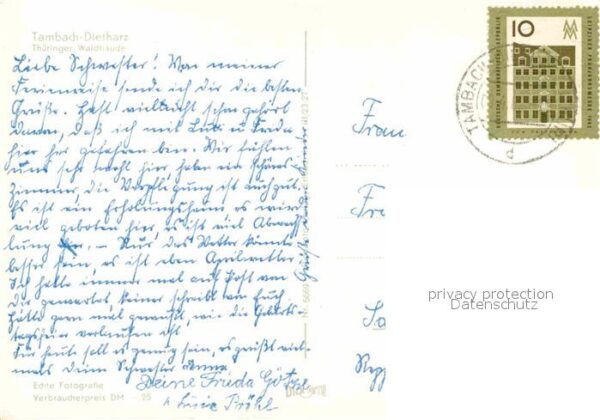 Tambach-Dietharz
Thüringer Waldbaude
Liebe Schwester! Von meiner
Ferienreise sende ich dir die besten
Grüße. Hast vielleicht schon gehört
davon, daß ich mit Luzie u. Frieda
hier her gefahren bin. Wir fühlen
uns sehr wohl hier, haben ein schönes
Zimmer, die Verpflegung ist auch gut.
Es ist ein Erholungsheim es wird
viel geboten hier, es ist viel Abwech
lung hier. – Nur das Wetter könnte
besser sein, es ist eben Aprilwetter.
Ich hatte immer mal auf Post von
Dir gewartet keiner schreibt von Euch
hätte gern mal gewußt, wie die Geburts
tagsfeier verlaufen ist
Für heute soll es genug sein, es grüßt viel
mals Deine Schwester Anna
Deine Frieda
u. Luzie Pröhl
Grüße
Echte Fotografie
Verbraucherpreis DM -.25
Frau
10
MM
DEUTSCHE DEMOKRATISCHE REPUBLIK
LEIPZIGER FRÜHJAHRSMESSE
TAMBACH
d
privacy protection
Datenschutz